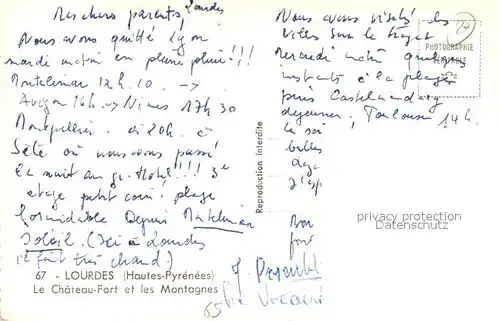 Mes chers parents, Lourdes
Nous avons quitté Lyon
mardi matin en pleine pluie!!!
Montelimar 12h.10. →
Avignon 16h. → Nimes 17h30
Montpellier à 20h. à
Sète où nous avons passé
la nuit au gr. Hotel!!! 3e
étage petit coin plage
formidable Depuis Montelimar
Soleil. (Ici à Lourdes
il fait très chaud.)
67 - LOURDES (Hautes-Pyrénées)
Le Château-Fort et les Montagnes
Reproduction interdite
Nous avons visité des
villes sur le trajet
Mercredi matin quelques
instants à la plage
puis Castelnaudary
dejeuner. Toulouse 14h.
le soi
belles
Bon
PHOTOGRAPHIE
VÉRITABLE
privacy protection
Datenschutz
J.
65